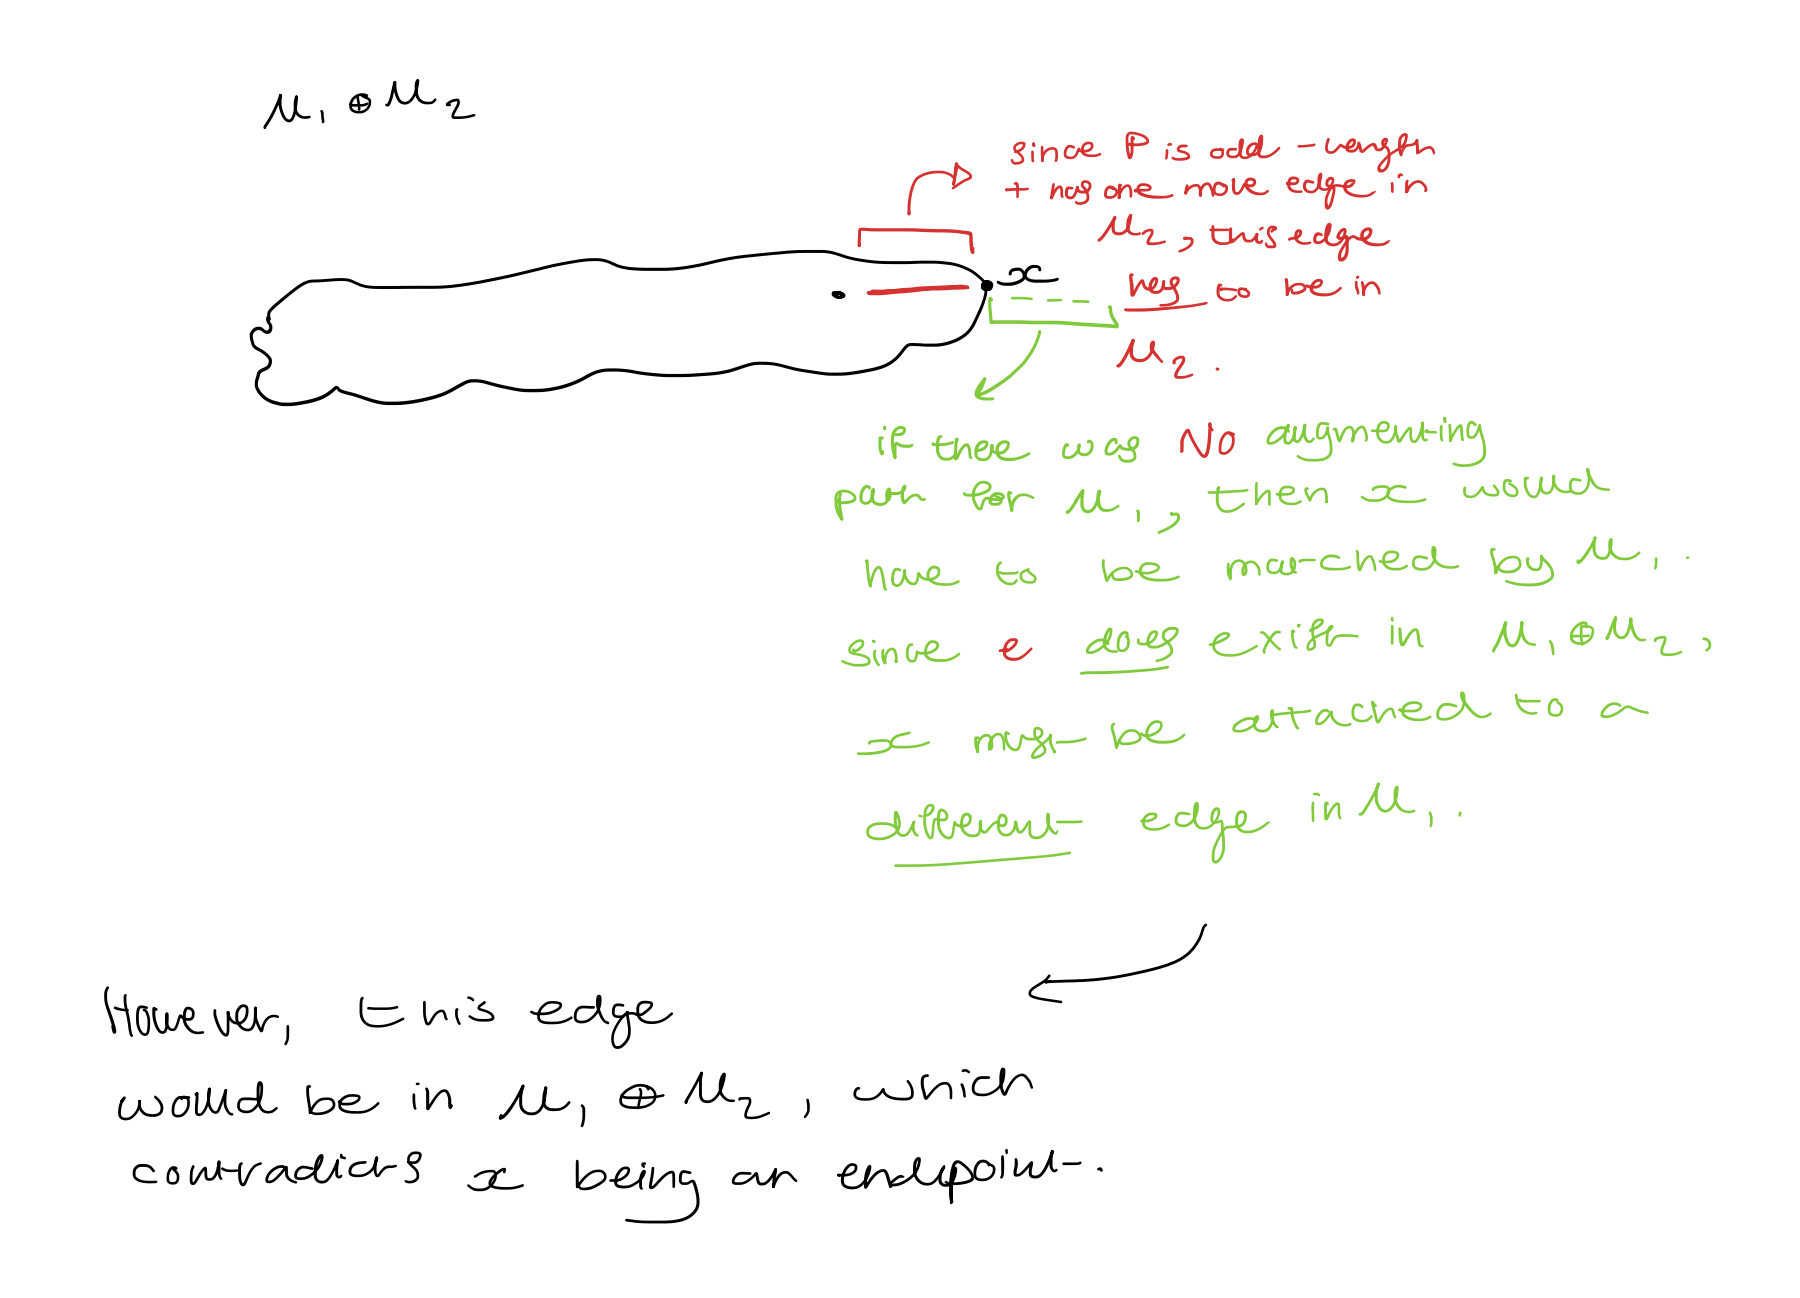 M₁ ⊕ M₂
since P is odd-length
+ has one more edge in
M₂, this edge
x
has to be in
M₂.
if there was NO augmenting
path for M₁, then x would
have to be matched by M₁.
since e does exist in M₁ ⊕ M₂,
x must be attached to a
different edge in M₁.
However, this edge
would be in M₁ ⊕ M₂, which
contradicts x being an endpoint.